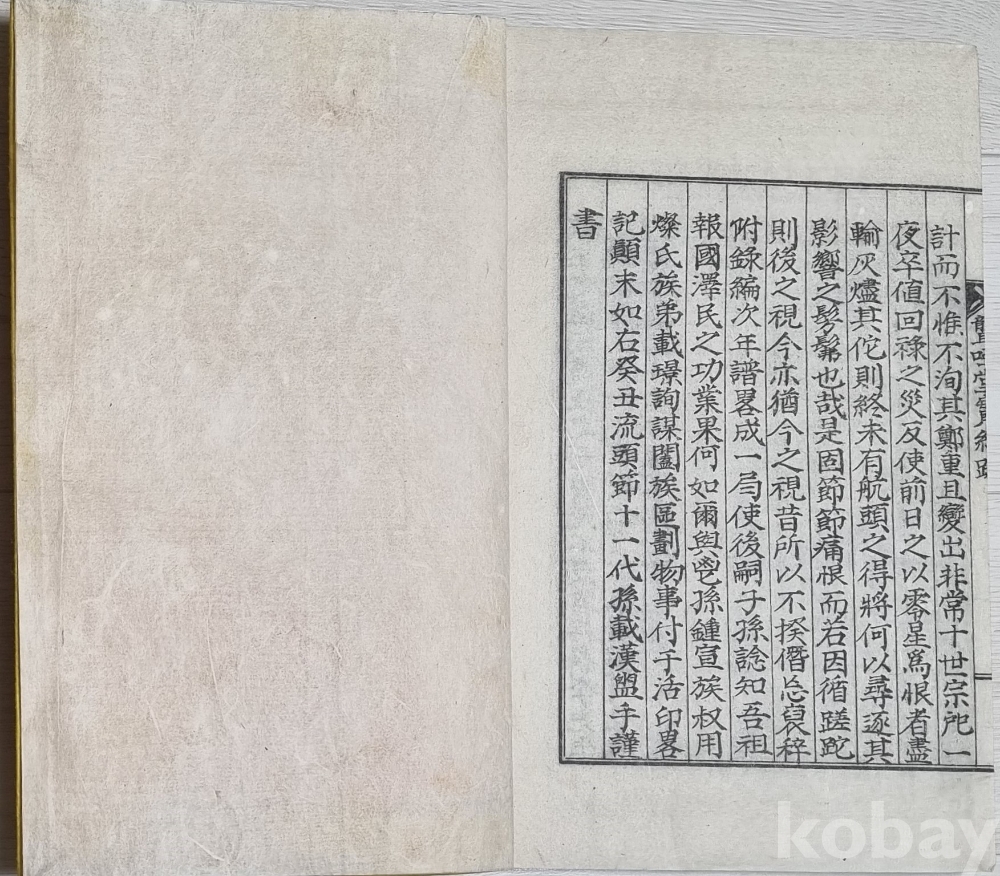 計而不惟不洵其鄭重且變出非常十世宗祀一
夜卒値回祿之災反使前日之以零星爲恨者盡
輸灰燼其佗則終未有航頭之得將何以尋逐其
影響之髣髴也哉是固節節痛恨而若因循蹉跎
則後之視今亦猶今之視昔所以不揆僭忘裒稡
附錄編次年譜畧成一局使後嗣子孫諗知吾祖
報國澤民之功業果何如爾與鬯孫鍾宣族叔用
燦氏族弟載璟詢謀闔族區劃物事付于活印畧
記顚末如右癸丑流頭節十一代孫載漢盥手謹
書
kobay